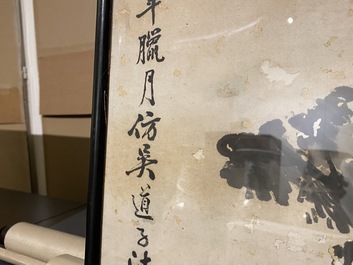 年臘月仿吳道子法